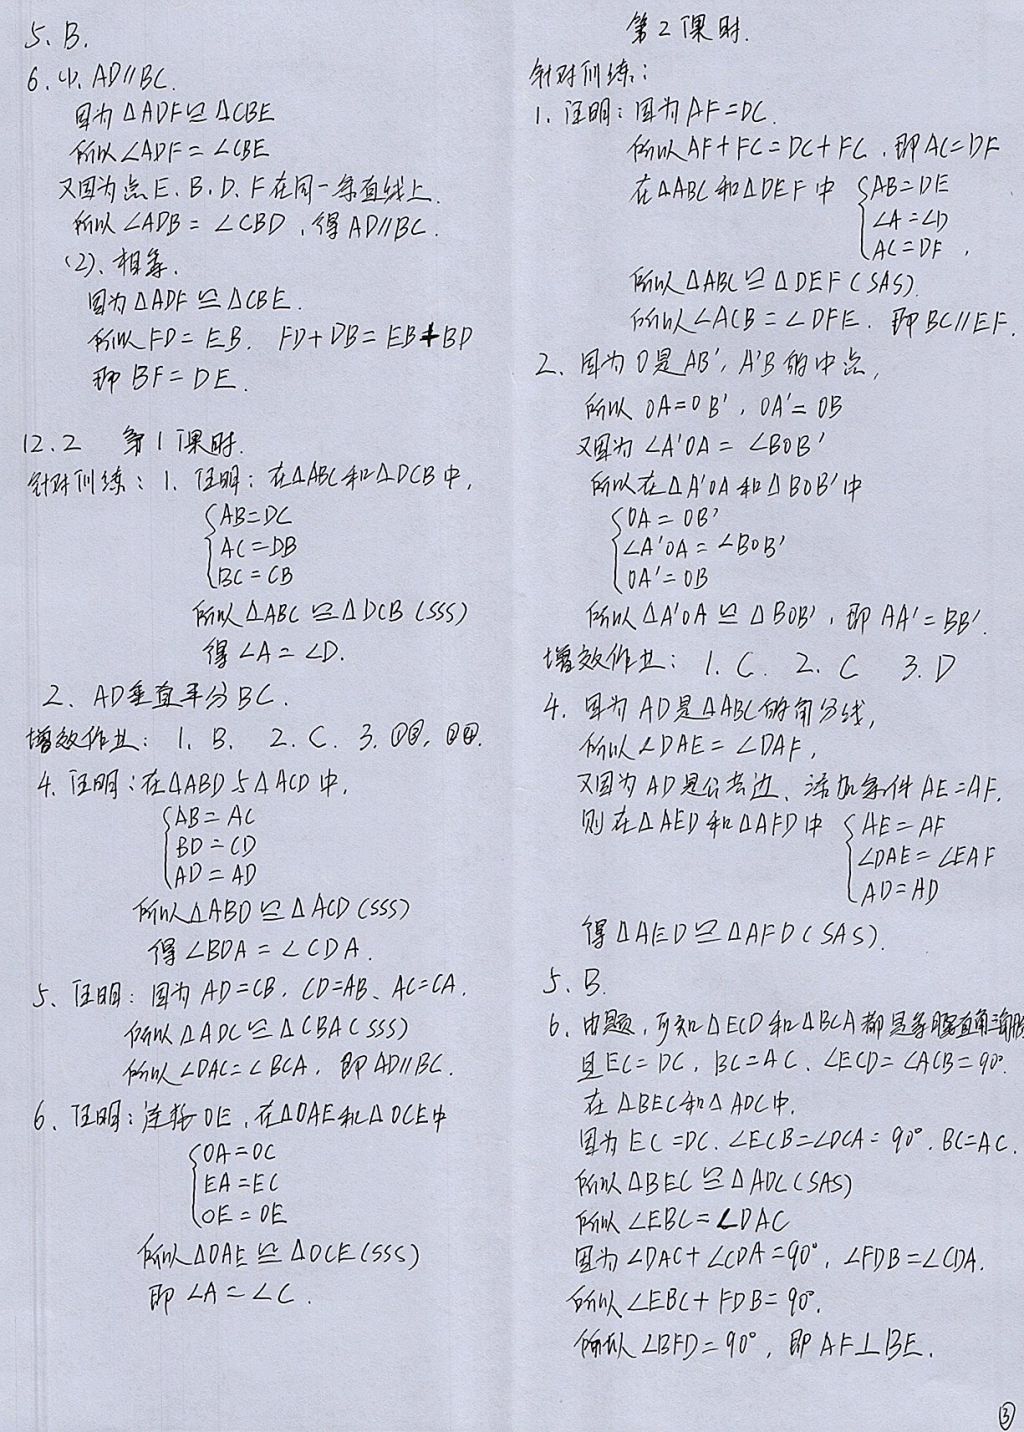 5、B.
6、(1)、AD//BC.
因为△ADF≌△CBE
所以∠ADF=∠CBE
又因为点E、B、D、F在同一条直线上.
所以∠ADB=∠CBD，得AD//BC.
(2)、相等.
因为△ADF≌△CBE.
所以FD=EB. FD+DB=EB+BD
即BF=DE.
12.2 第1课时.
针对训练：1、证明：在△ABC和△DCB中，
AB=DC
AC=DB
BC=CB
所以△ABC≌△DCB(SSS)
得∠A=∠D.
2、AD垂直平分BC.
增效作业：1、B. 2、C. 3、①③，②④.
4、证明：在△ABD与△ACD中，
AB=AC
BD=CD
AD=AD
所以△ABD≌△ACD(SSS)
得∠BDA=∠CDA.
5、证明：因为AD=CB，CD=AB、AC=CA.
所以△ADC≌△CBA(SSS)
所以∠DAC=∠BCA，即AD//BC.
6、证明：连接OE，在△OAE和△OCE中
OA=OC
EA=EC
OE=OE
所以△OAE≌△OCE(SSS)
即∠A=∠C.
第2课时.
针对训练：
1、证明：因为AF=DC.
所以AF+FC=DC+FC，即AC=DF
在△ABC和△DEF中 AB=DE
∠A=∠D
AC=DF，
所以△ABC≌△DEF(SAS).
所以∠ACB=∠DFE. 即BC//EF.
2、因为O是AB'，A'B的中点，
所以OA=OB'，OA'=OB
又因为∠A'OA=∠BOB'
所以在△A'OA和△BOB'中
OA=OB'
∠A'OA=∠BOB'
OA'=OB
所以△A'OA≌△BOB'，即AA'=BB'.
增效作业：1、C. 2、C 3、D
4、因为AD是△ABC的角分线，
所以∠DAE=∠DAF，
又因为AD是公共边、添加条件AE=AF.
则在△AED和△AFD中 AE=AF
∠DAE=∠EAF
AD=AD
得△AED≌△AFD(SAS).
5、B.
6、由题，可知△ECD和△BCA都是等腰直角三角形
且EC=DC，BC=AC、∠ECD=∠ACB=90°.
在△BEC和△ADC中，
因为EC=DC、∠ECB=∠DCA=90°、BC=AC.
所以△BEC≌△ADC(SAS)
所以∠EBC=∠DAC
因为∠DAC+∠CDA=90°，∠FDB=∠CDA.
所以∠EBC+FDB=90°.
所以∠BFD=90°，即AF⊥BE.
③